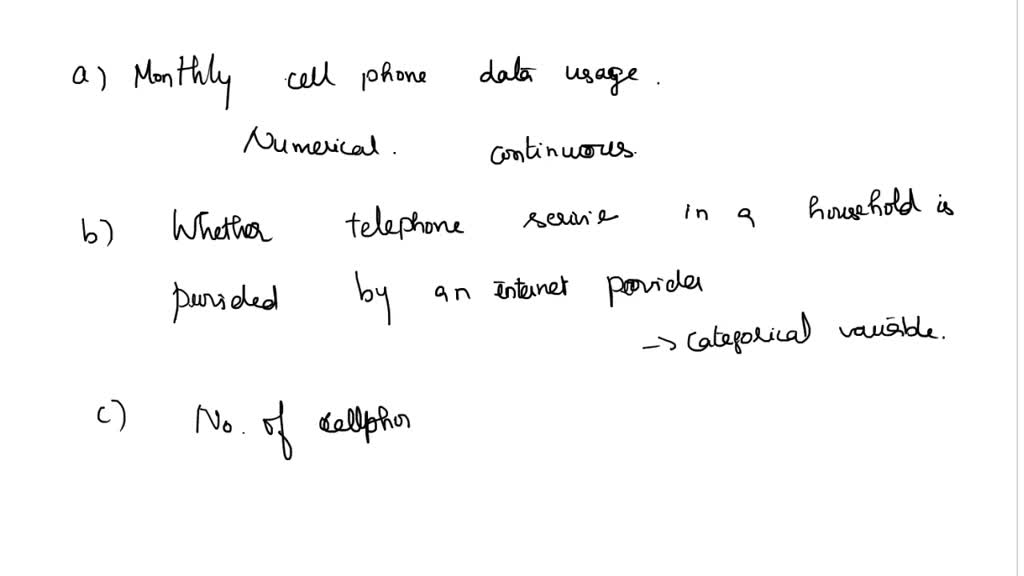 a) Monthly cell phone data usage.
Numerical. continuous.
b) Whether telephone servie in a household is
purided by an internet provider
→ Categorical variable.
c) No. of cellphon